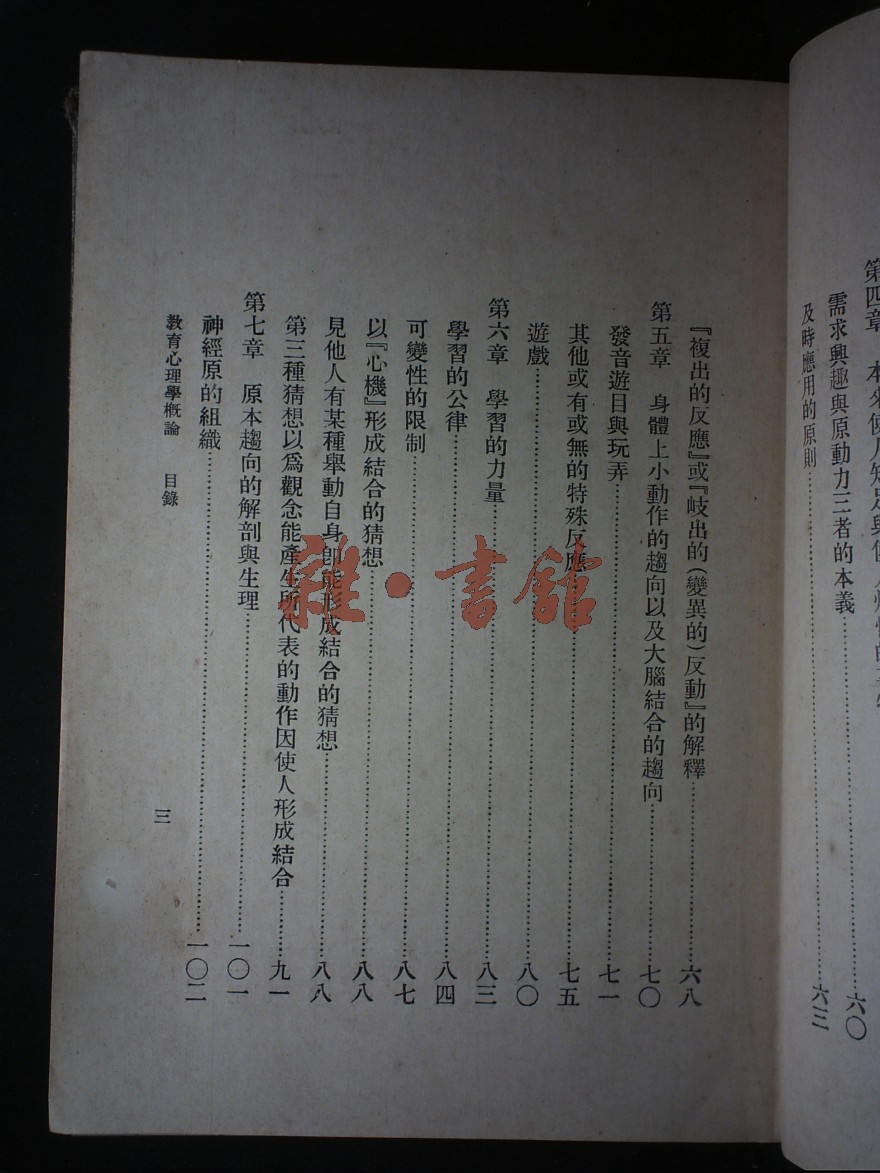 第四章
需求興趣與原動力三者的本義……六〇
及時應用的原則……六三
『複出的反應』或『歧出的(變異的)反動』的解釋……六八
第五章 身體上小動作的趨向以及大腦結合的趨向……七〇
發音遊目與玩弄……七一
其他或有或無的特殊反應……七五
遊戲……八〇
第六章 學習的力量……八三
學習的公律……八四
可變性的限制……八七
以『心機』形成結合的猜想……八八
見他人有某種舉動自身即能形成結合的猜想……八八
第三種猜想以爲觀念能產生所代表的動作因使人形成結合……九一
第七章 原本趨向的解剖與生理……一〇一
神經原的組織……一〇二
教育心理學概論 目錄 三
雜·書館